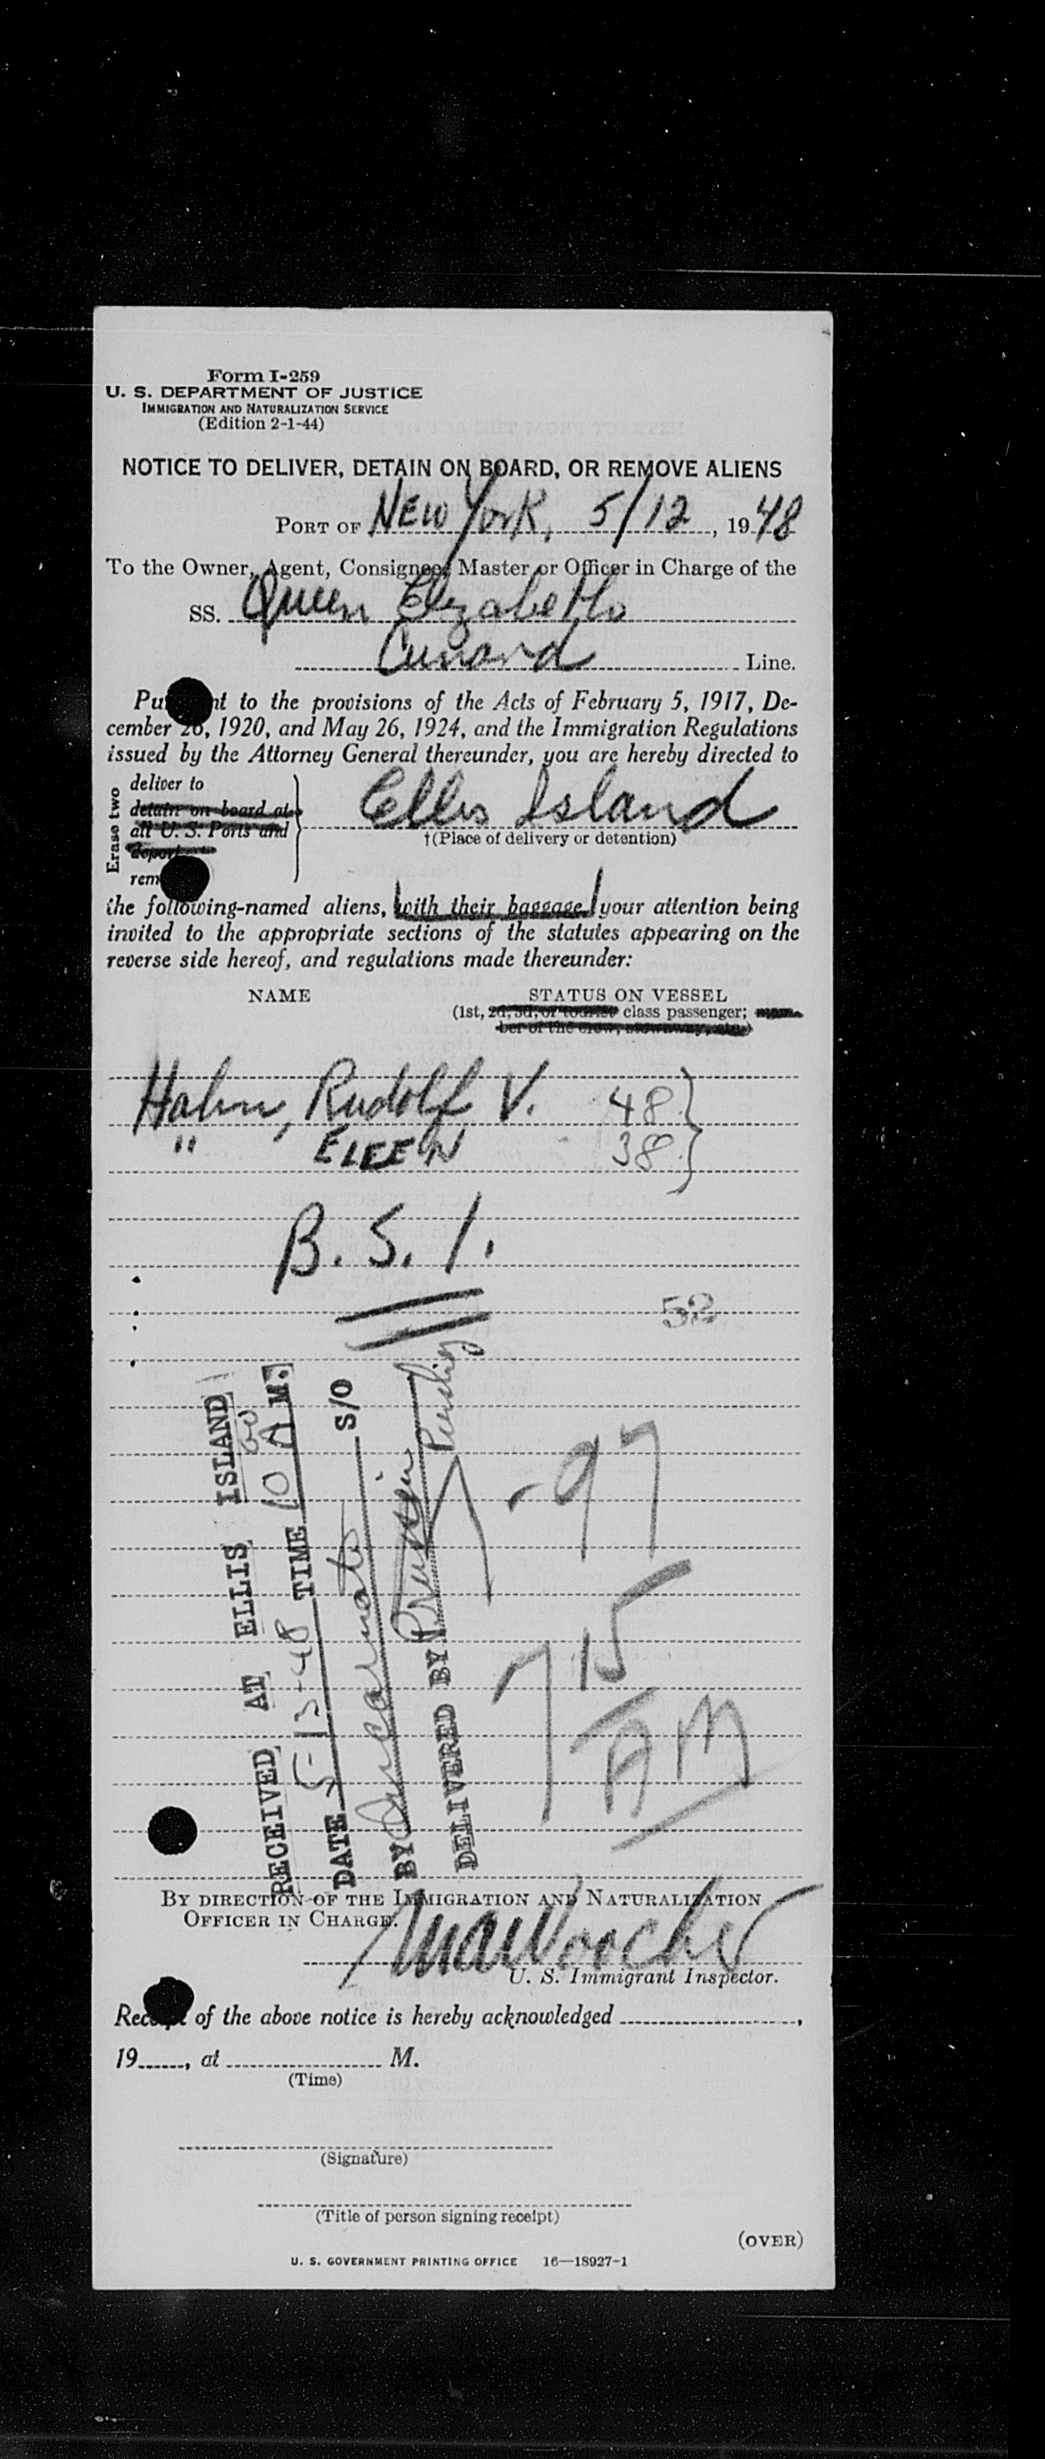 Form I-259
U. S. DEPARTMENT OF JUSTICE
IMMIGRATION AND NATURALIZATION SERVICE
(Edition 2-1-44)
NOTICE TO DELIVER, DETAIN ON BOARD, OR REMOVE ALIENS
PORT OF New York, 5/12, 1948
To the Owner, Agent, Consignee, Master or Officer in Charge of the
SS. Queen Elizabeth
Cunard Line.
Pu nt to the provisions of the Acts of February 5, 1917, De-
cember 26, 1920, and May 26, 1924, and the Immigration Regulations
issued by the Attorney General thereunder, you are hereby directed to
Erase two
deliver to
detain on board at
all U. S. Ports and
rem
Ellis Island
†(Place of delivery or detention)
the following-named aliens, with their baggage, your attention being
invited to the appropriate sections of the statutes appearing on the
reverse side hereof, and regulations made thereunder:
NAME STATUS ON VESSEL
(1st, 2d, 3d, or tourist class passenger; mem-
ber of the crew, stowaway, etc.)
Hahn, Rudolf V. 48
" EILEEN 38
B. S. I.
52
RECEIVED AT ELLIS ISLAND
DATE 5-13-48 TIME 10 A M.
BY S/O
DELIVERED BY
7-97
7 15
AM
BY DIRECTION OF THE IMMIGRATION AND NATURALIZATION
OFFICER IN CHARGE.
U. S. Immigrant Inspector.
Receipt of the above notice is hereby acknowledged ,
19 , at M.
(Time)
(Signature)
(Title of person signing receipt)
(OVER)
U. S. GOVERNMENT PRINTING OFFICE 16—18927-1